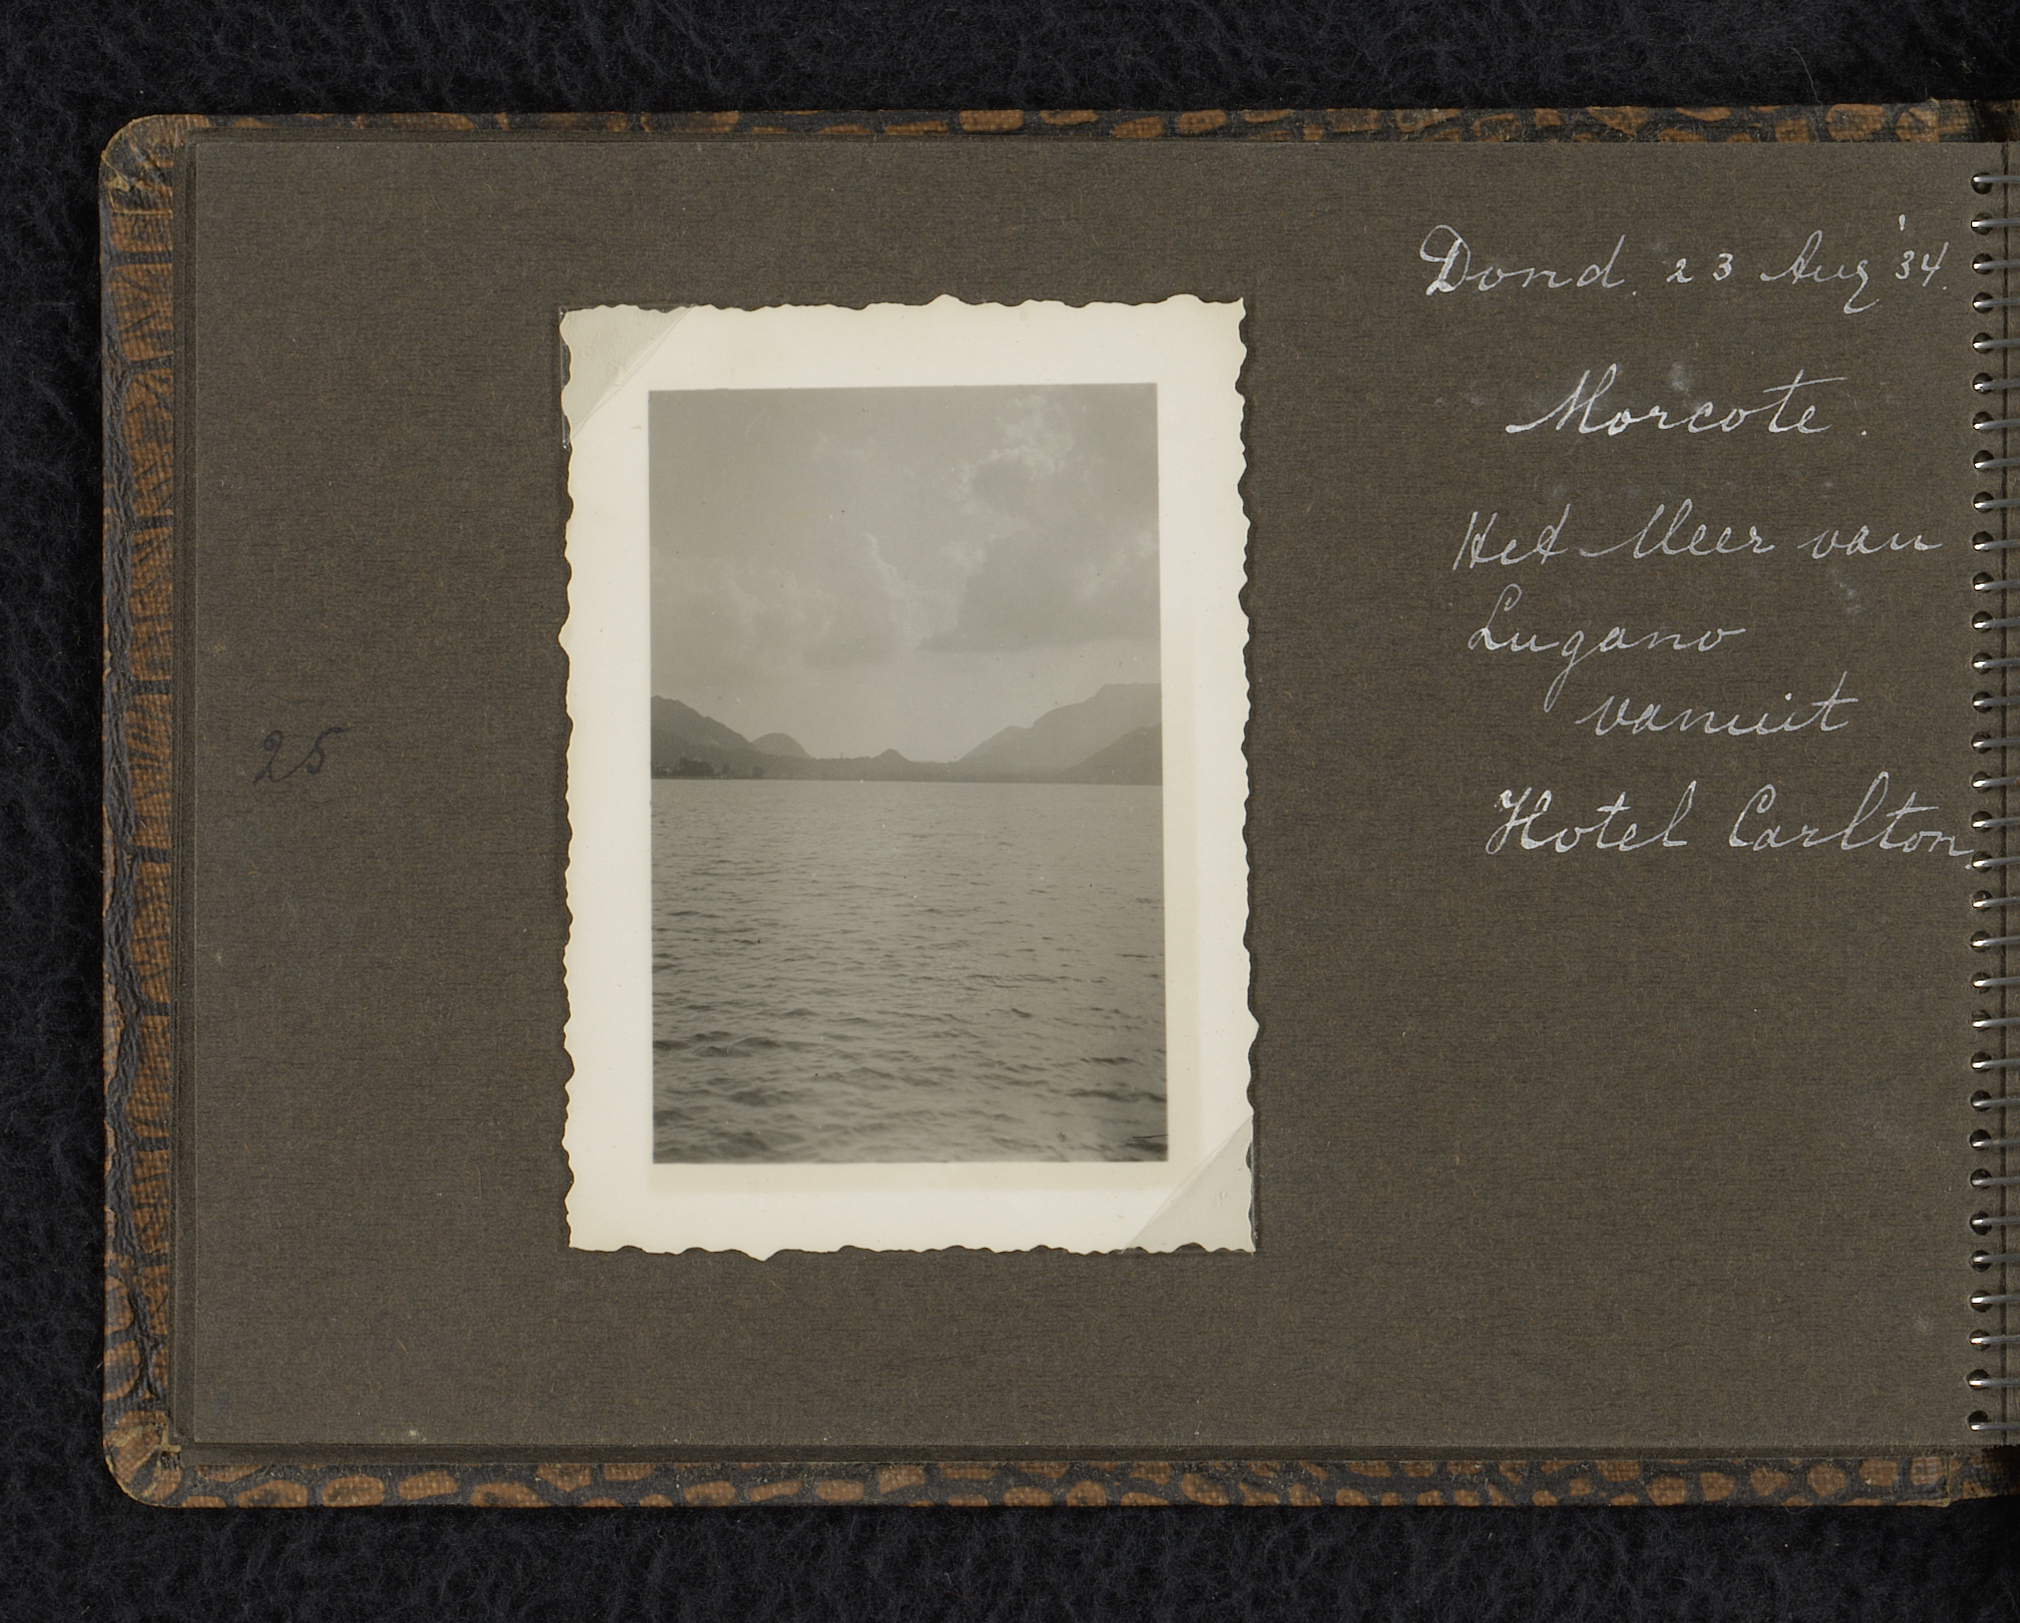 Dond. 23 Aug '34.
Morcote.
Het Meer van
Lugano
vanuit
Hotel Carlton.
25